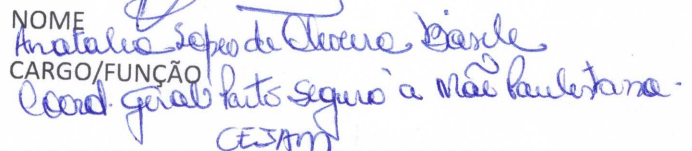 NOME
Anatalia Lopes de Oliveira Basile
CARGO/FUNÇÃO
Coord. Geral Parto Seguro à Mãe Paulistana -
CEJAM